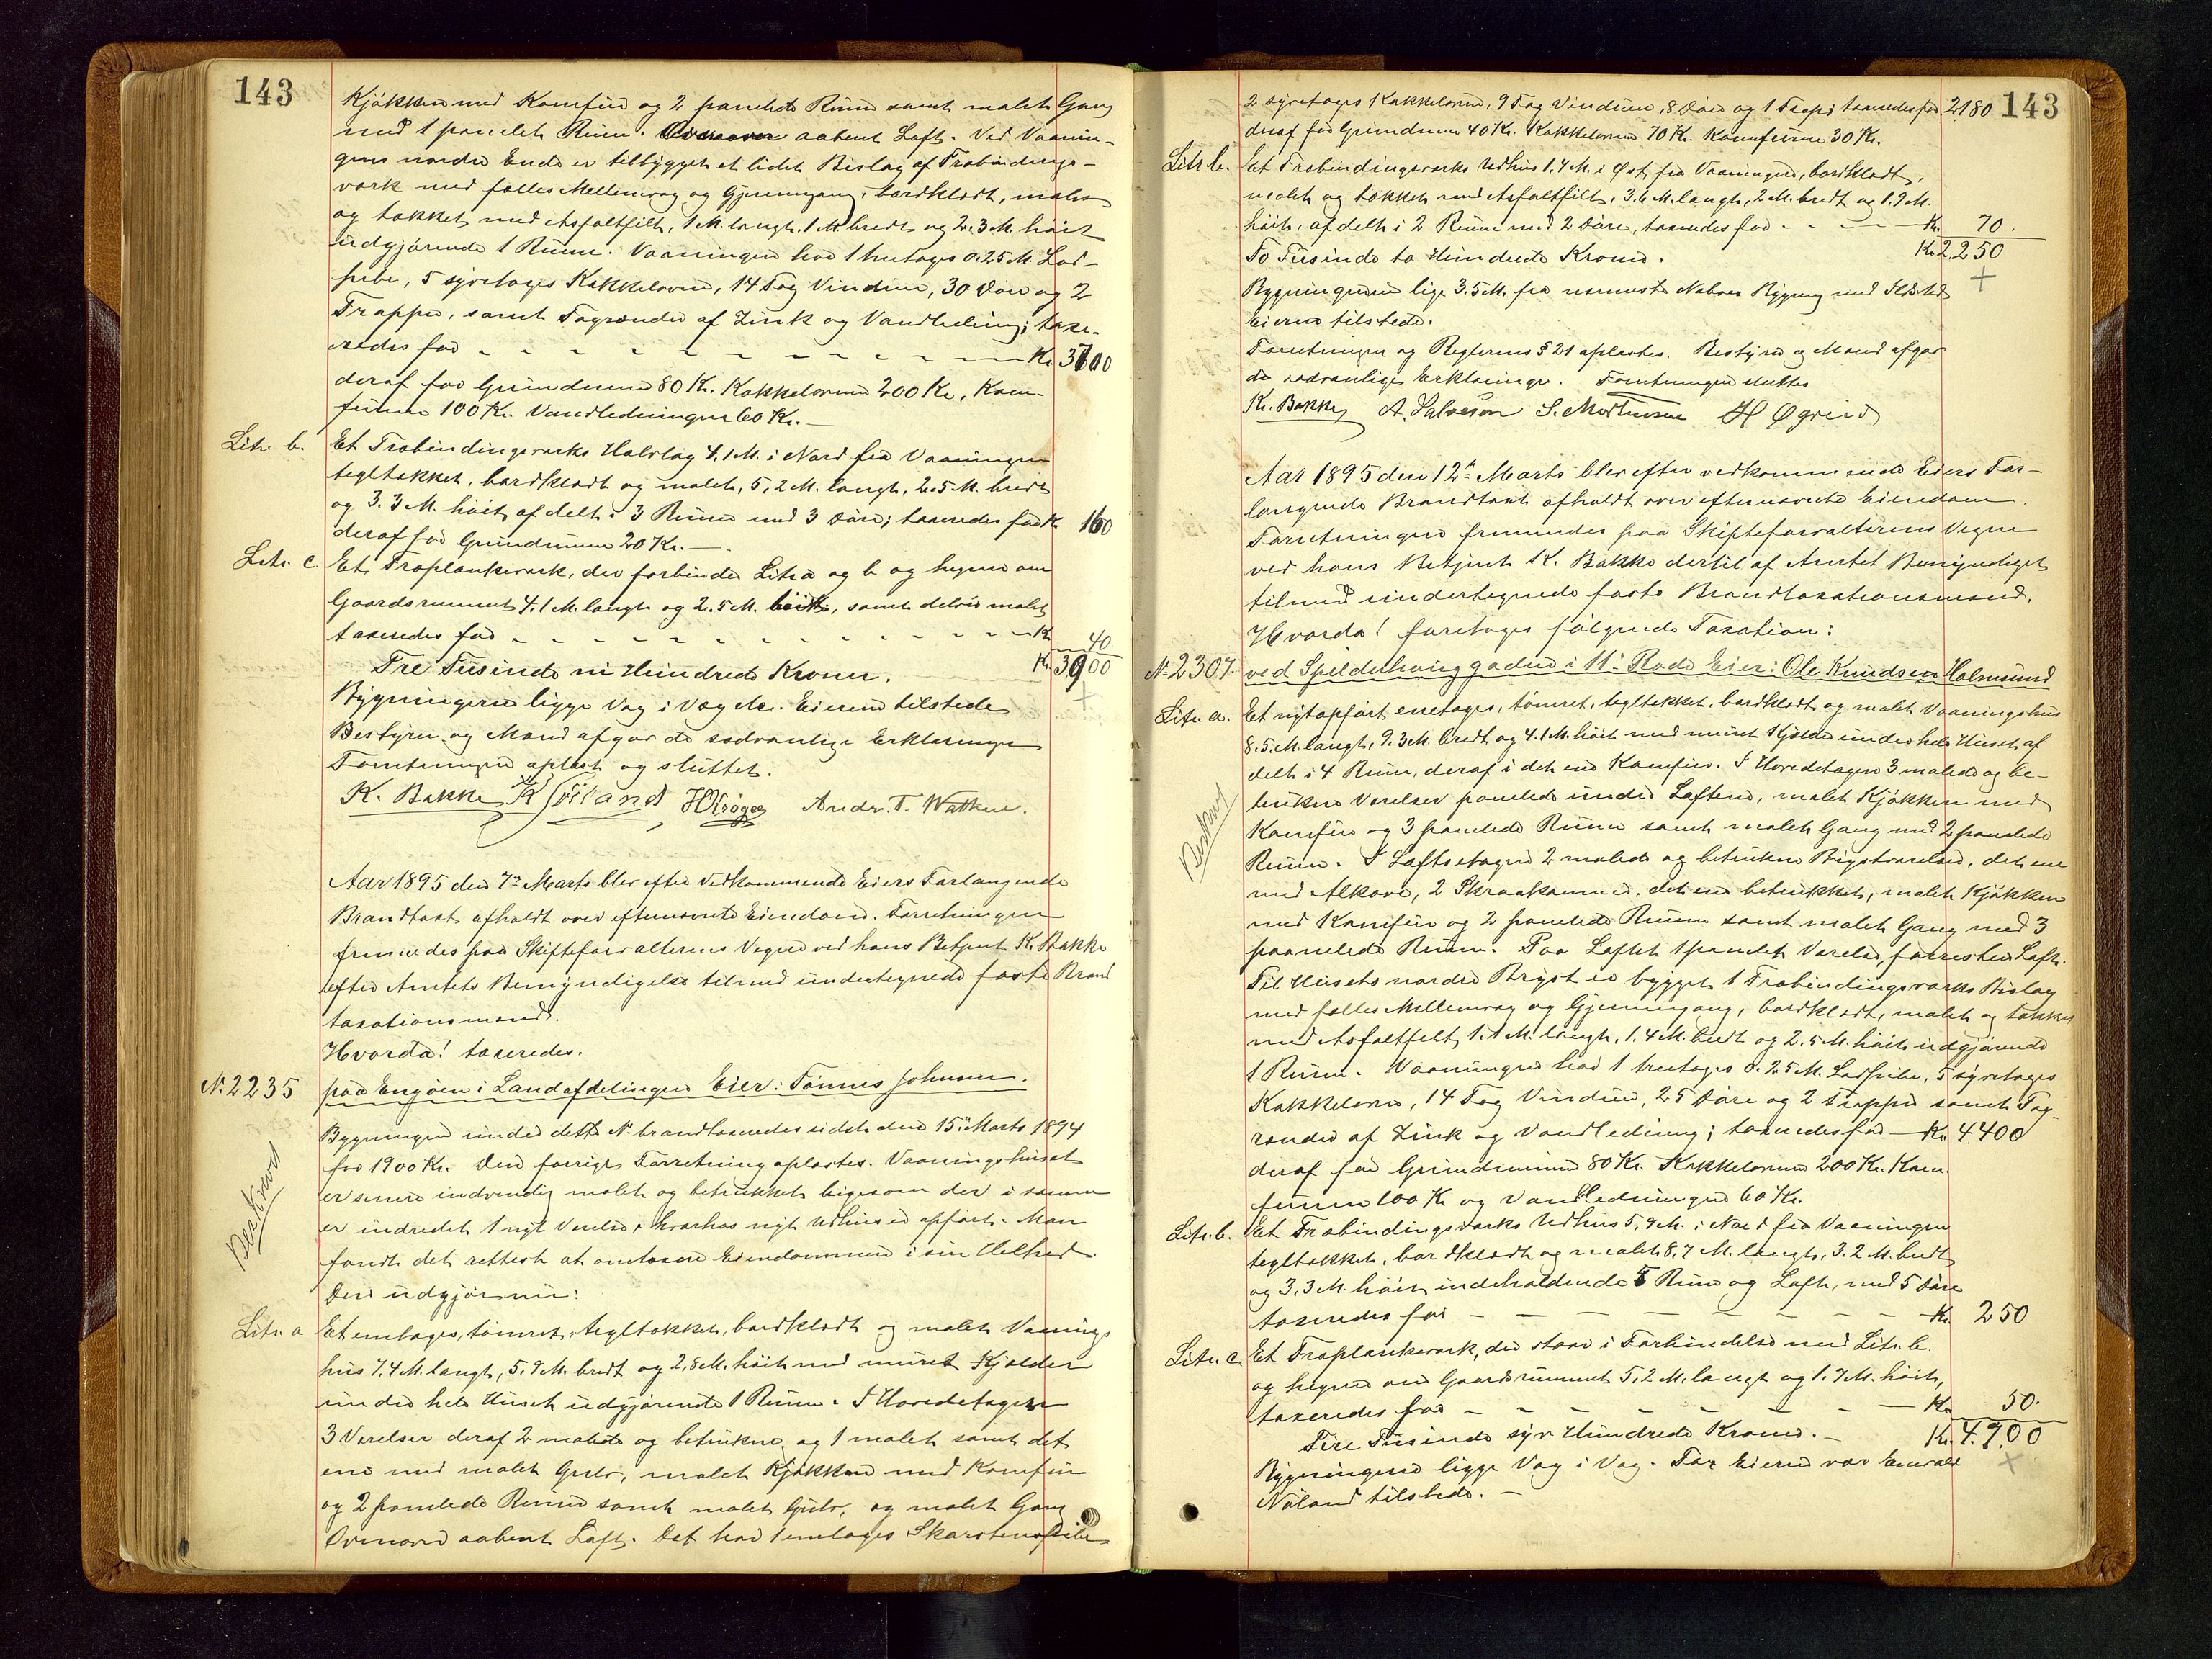 143
Kjøkken med Komfur og 2 panelede Rum samt malet Gang
med 1 panelet Rum. Ovenover aabent Loft. Ved Vaanin-
gens nordre Ende er tilbygget et lidet Bislag af Træbindings-
værk med fælles Mellemvæg og Gjennemgang, bordklædt, malet
og tækket med Asfaltfilt, 1 M. langt, 1 M. bredt og 2.3 M. høit
udgjørende 1 Rum. Vaaningen har 1 treetages 0.25 M. Lod-
pibe, 5 syvetages Kakkelovne, 14 Fag Vinduer, 30 Døre og 2
Trapper, samt Tagrender af Zink og Vandledning; taxe-
redes for - - - - - - - - - - - - Kr. 3700
deraf for Grundmuren 80 Kr. Kakkelovnene 200 Kr., Kom-
furene 100 Kr. Vandledningen 60 Kr. —
Litr. b. Et Træbindingsværks Halvtag 4.1 M. i Nord fra Vaaningen
tegltækket, bordklædt og malet, 5,2 M. langt, 2.5 M. bredt
og 3.3 M. høit, afdelt i 3 Rum med 3 Døre; taxeredes for Kr. 160
deraf for Grundmuren 20 Kr. —
Litr. c. Et Træplankeværk, der forbinder Litr. a og b og hegner om
Gaardsrummet 4,1 M. langt og 2.5 M. høit, samt delvis malet
taxeredes for - - - - - - - - - - - - Kr. 40
Tre Tusinde ni Hundrede Kroner. Kr. 3900
Bygningerne ligge Væg i Væg etc. Eieren tilstede
Bestyrer og Mænd afgav de sædvanlige Erklæringer
Forretningen oplæst og sluttet.
K. Bakke Andr. T. Wathne.
Aar 1895 den 7de Marts blev efter Vedkommende Eiers Forlangende
Brandtaxt afholdt over efternævnte Eiendom. Forretningen
fremmedes paa Skifteforvalterens Vegne ved hans Betjent K. Bakke
efter Amtets Bemyndigelse tilmed undertegnede faste Brand
taxationsmænd.
Hvorda! taxeredes.
No. 2235 paa Engøen i Landafdelingen Eier: Tønnes Johnsen.
Bygningen under dette No. brandtaxeredes sidst den 15de Marts 1894
for 1900 Kr. Den forrige Forretning oplæstes. Vaaningshuset
er senere indvendig malet og betrukket ligesom der i samme
er indredet 1 nyt Værelse, hvorhos nyt Udhus er opført. Man
fandt det rettest at omtaxere Eiendommen i sin Helhed.
Beskrevet
Den udgjør nu:
Litr. a Et enetages, tømret, tegltækket, bordklædt og malet Vaanings
hus 7.4 M. langt, 5,9 M. bredt og 2,8 M. høit med muret Kjelder
under hele Huset udgjørende 1 Rum. I Hovedetagen
3 Værelser deraf 2 malede og betrukne og 1 malet samt det
ene med malet Gulv, malet Kjøkken med Komfur
og 2 panelede Rum samt malet Gulv, og malet Gang
Ovenover aabent Loft. Det har 1 enetages Skorstenspibe
143
2 syvetages Kakkelovne, 9 Fag Vinduer, 8 Døre og 1 Trap; taxeredes for 2180
deraf for Grundmuren 40 Kr. Kakkelovnene 70 Kr. Komfurene 30 Kr.
Litr. b. Et Træbindingsværks Udhus 1,4 M. i Øst fra Vaaningen, bordklædt,
malet og tækket med Asfaltfilt, 3.6 M. langt, 2 M. bredt og 1.9 M.
høit, afdelt i 2 Rum med 2 Døre, taxeredes for - - - - Kr. 70.
To Tusinde to Hundrede Kroner. Kr. 2,250
Bygningerne ligge 3.5 M. fra nærmeste Naboes Bygning med Ildsted
Eieren tilstede.
Forretningen og Reglernes § 21 oplæstes. Bestyrer og Mænd afgav
de sædvanlige Erklæringer. Forretningen sluttet
K. Bakke A. Salveson S. Mortensen H Øgreid
Aar 1895 den 12te Marts blev efter vedkommende Eiers For-
langende Brandtaxt afholdt over efternævnte Eiendom.
Forretningen fremmedes paa Skifteforvalterens Vegne
ved hans Betjent K. Bakke dertil af Amtet Bemyndiget
tilmed undertegnede faste Brandtaxationsmænd.
Hvorda! foretoges følgende Taxation:
No. 2307. ved Spilderhauggaden i 11te Rode Eier: Ole Knudsen Holmsund
Litr. a. Et nytopført enetages, tømret, tegltækket, bordklædt og malet Vaaningshus
8.5 M. langt, 9.3 M. bredt og 4.1 M. høit med muret Kjelder under hele Huset af
delt i 4 Rum, deraf i det ene Komfur. I Hovedetagen 3 malede og be-
trukne Værelser panelede under Loftene, malet Kjøkken med
Komfur og 3 panelede Rum samt malet Gang med 2 panelede
Beskrevet
Rum. I Loftsetagen 2 malede og betrukne Brystværelser, det ene
med Alkove, 2 Skraakammer, det ene betrukket, malet Kjøkken
med Komfur og 2 panelede Rum samt malet Gang med 3
paanelede Rum. Paa Loftet 1 panelet Værelse, forresten Loft.
Til Husets nordre Bryst er bygget 1 Træbindingsværks Bislag
med fælles Mellemvæg og Gjennemgang, bordklædt, malet og tækket
med Asfaltfilt, 1.1 M. langt, 1.4 M. bredt og 2.5 M. høit udgjørende
1 Rum. Vaaningen har 1 treetages 0.25 M. Lodpibe, 5 syvetages
Kakkelovne, 14 Fag Vinduer, 25 Døre og 2 Trapper samt Tag-
render af Zink og Vandledning; taxeredes for — Kr. 4.400
deraf for Grundmuren 80 Kr. Kakkelovnene 200 Kr. Kom-
furene 100 Kr og Vandledningen 60 Kr.
Litr. b. Et Træbindingsværks Udhus 5,9 M. i Nord fra Vaaningen
tegltækket, bordklædt og malet 8,7 M. langt, 3.2 M. bredt
og 3,3 M. høit, indeholdende 5 Rum og Loft, med 5 Døre
taxeredes for - - - - - - - Kr. 250
Litr. c. Et Træplankeværk, der staar i Forbindelse med Litr. b.
og hegner om Gaardsrummet 5,2 M. langt og 1.9 M. høit,
taxeredes for - - - - - - - Kr. 50.
Fire Tusinde syv Hundrede Kroner. — Kr. 4.700
Bygningerne ligge Væg i Væg. For Eieren var
Nåland tilstede. —